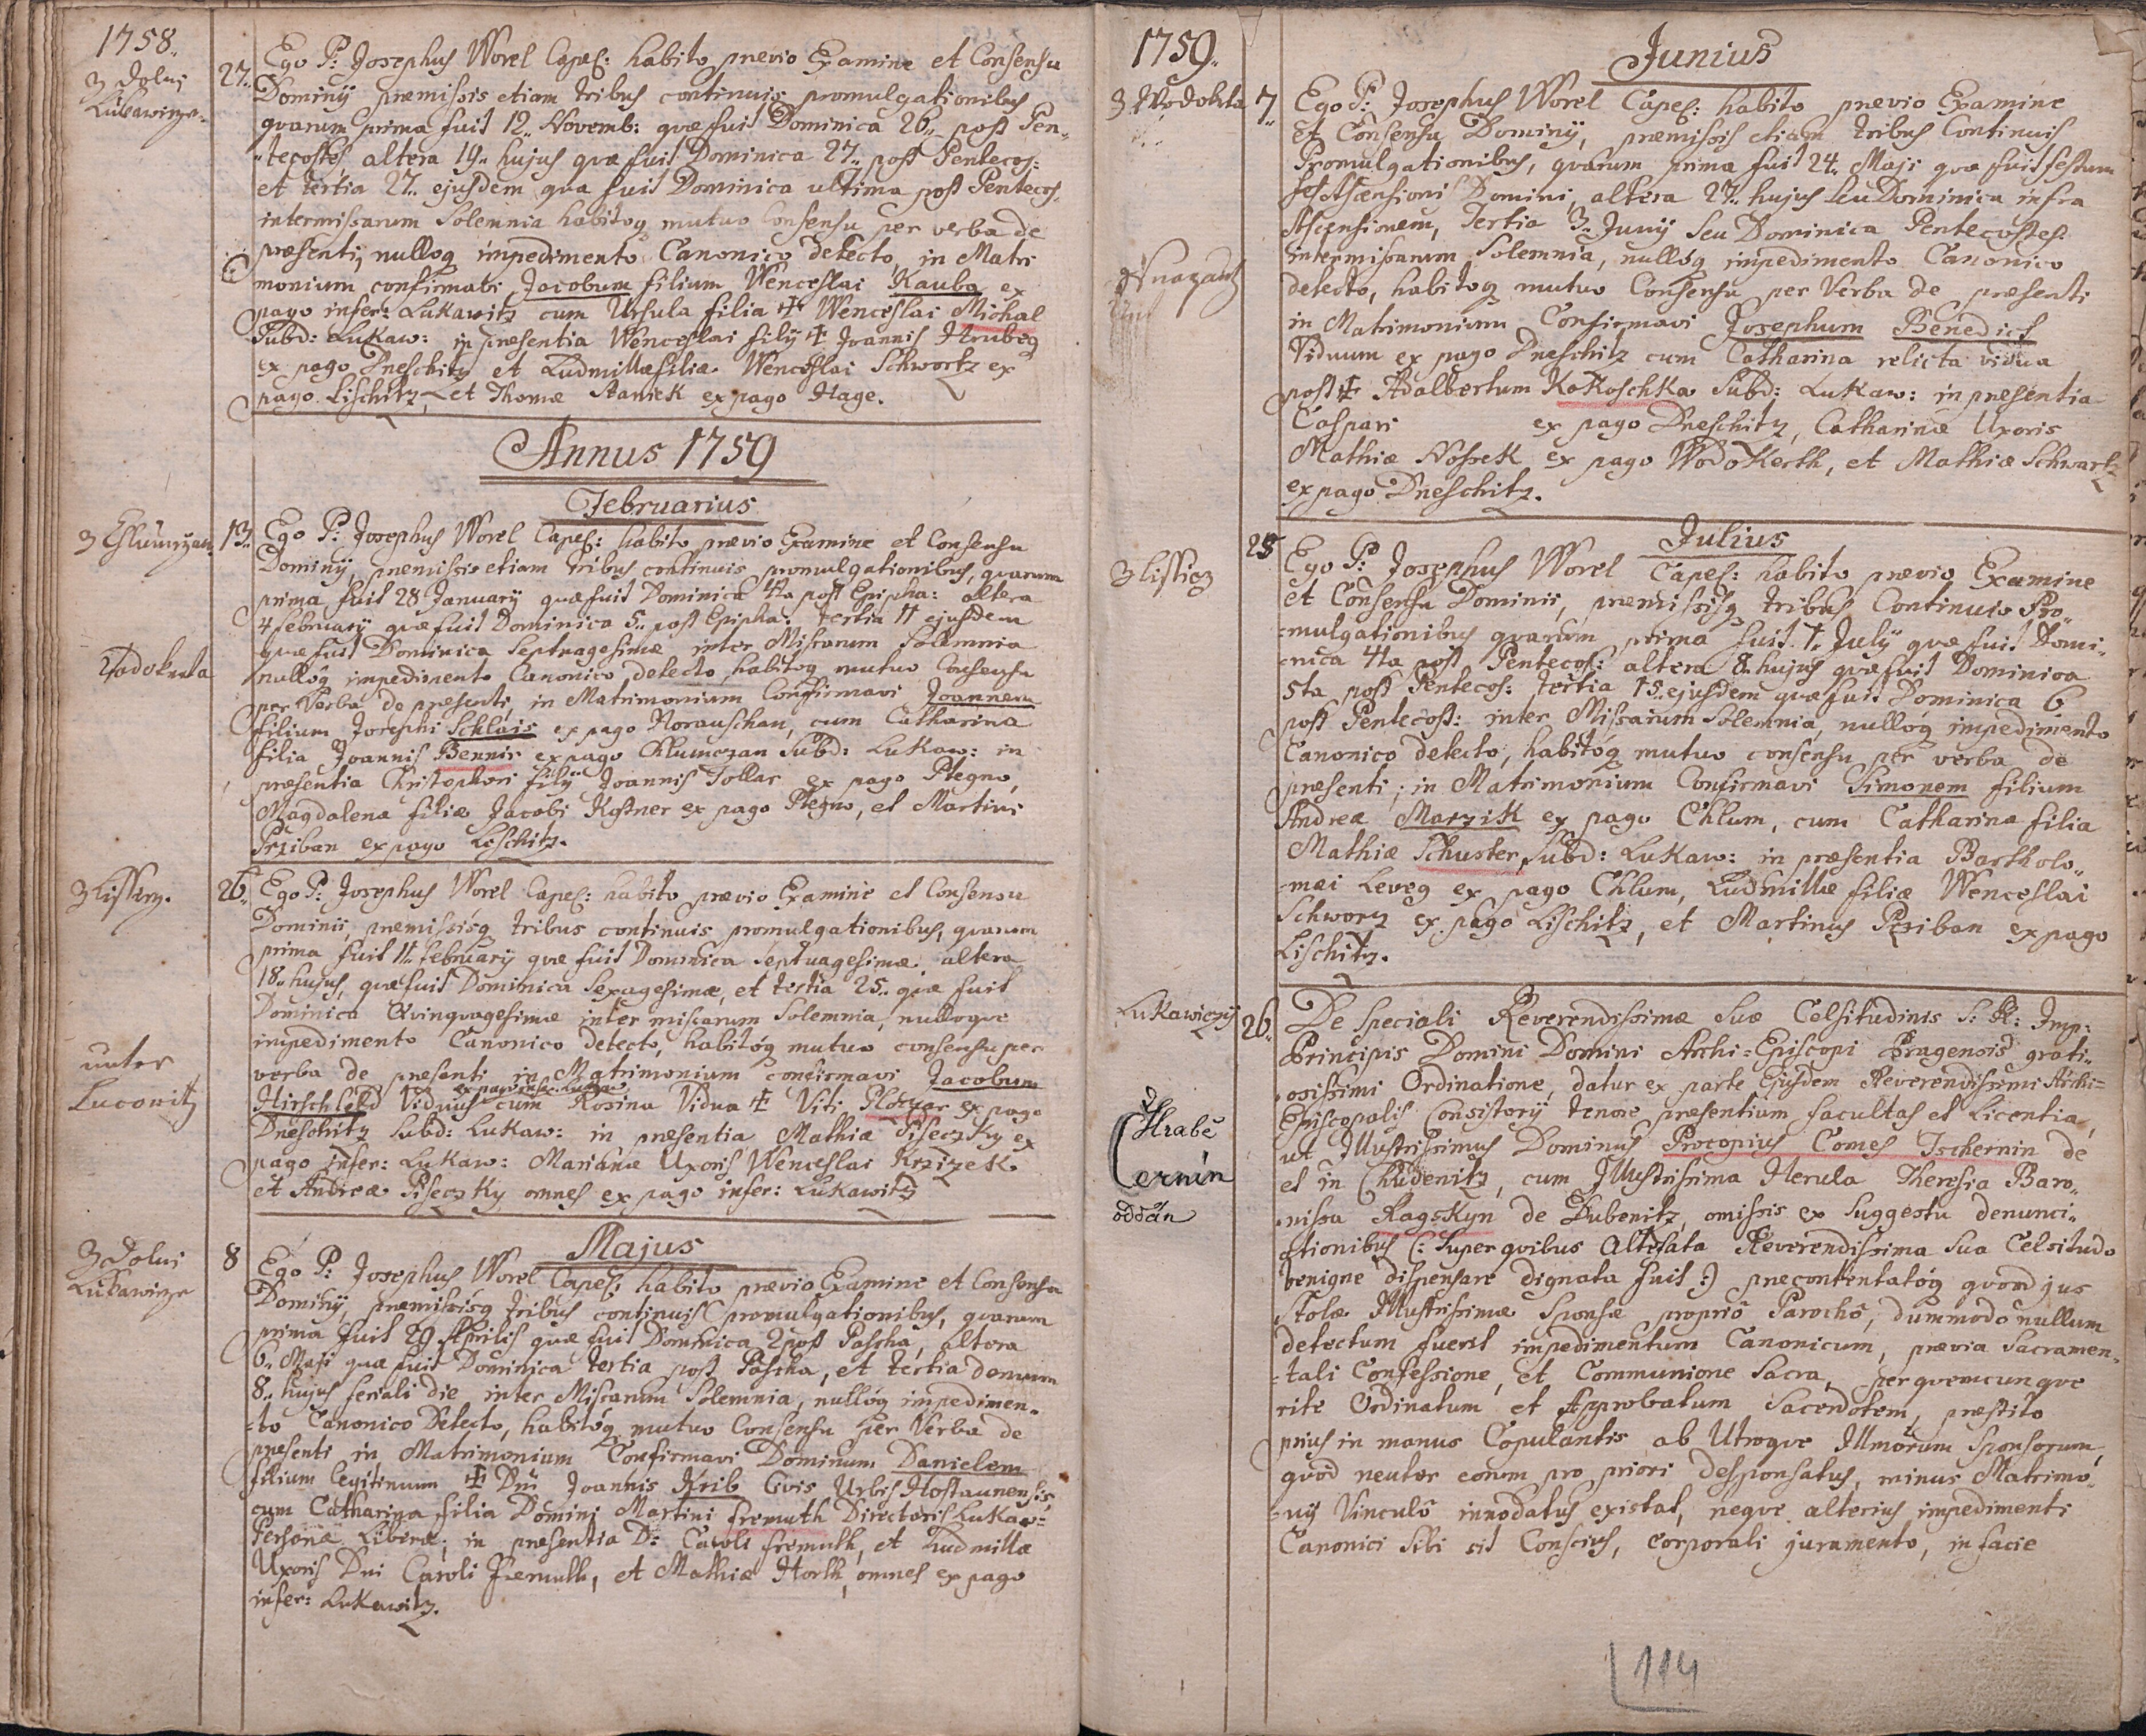 1758.
Z Dolni
Lukawicze.
27. Ego P: Josephus Worel Capel: habito prævio Examine et Consensu
Dominÿ præmissis etiam tribus continuis promulgationibus
qvarum prima fuit 12. Novemb: quæ fuit Dominica 26. post Pen„
„tecostes altera 19. hujus quæ fuit Dominica 27. post Pentecos:
et tertia 27. ejusdem qua fuit Dominica ultima post Pentecos.
inter missarum Solemnia habitoq mutuo Consensu per verba de
præsenti, nulloq impedimento Canonico detecto, in Matri
monium confirmavi Jacobum filium Wenceslai Kauba ex
pago infer: Lukawitz cum Ursula filia ☩ Wenceslai Michal
Subd: Lukaw: in præsentia Wenceslai filÿ ☩ Joannis Hrubeg
ex pago Dneschitz et Ludmillæ filiæ Wenceslai Schwortz ex
pago Lischitz, et Thomæ Staniek ex pago Hage.
Annus 1759
Februarius
Z Chlumczan
13. Ego P: Josephus Worel Capel: habito prævio Examine et Consensu
Dominÿ, præmissis etiam tribus continuis promulgationibus, qvarum
prima fuit 28 Januarÿ quæ fuit Dominica 4ta post Epipha: altera
4 februarÿ quæ fuit Dominica 5. post Epipha: tertia 11 ejusdem
quæ fuit Dominica Septuagesimæ inter Missarum Solemnia
Wodokrta
nulloq impedimento Canonico detecto, habitoq mutuo Consensu
per Verba de præsenti, in Matrimonium Confirmavi Joannem
filium Josephi Schlais ex pago Horauschan, cum Catharina
filia Joannis Bennis ex pago Chlumczan Subd: Lukaw: in
præsentia Christophori filÿ Joannis Tollar ex pago Ptegno,
Magdalenæ filiæ Jacobi Kostner ex pago Ptegno, et Martini
Prziban ex pago Lischitz.
Z Lissicz.
26. Ego P: Josephus Worel Capel: habito prævio Examine et Consensu
Dominii, præmissisq tribus continuis promulgationibus, qvarum
prima fuit 11. februarÿ quæ fuit Dominica Septuagesimæ, altera
18. hujus, quæ fuit Dominica Sexagesimæ, et tertia 25. quæ fuit
Dominica Qvinqvagesimæ inter missarum Solemnia, nulloqve
unter
Lucowitz
impedimento Canonico detecto, habitóq mutuo consensu per
verba de præsenti in Matrimonium confirmavi Jacobum
ex pago infer: Lukaw:
Hirschfeld Viduus cum Rosina Vidua ☩ Viti Ploczar ex pago
Dneschitz Subd: Lukaw: in præsentia Mathiæ Piseczky ex
pago infer: Lukaw: Marianæ Uxoris Wenceslai Krzizek
et Andreæ Piseczky omnes ex pago infer: Lukawitz
Majus
Z Dolni
Lukawicze
8 Ego P: Josephus Worel Capel: habito prævio Examine et Consensu
Dominÿ, præmissisq tribus continuis promulgationibus, qvarum
prima fuit 29 Aprilis quæ fuit Dominica 2 post Pascha, altera
6. Maji quæ fuit Dominica tertia post Pascha, et tertia demum
8. hujus feriali die inter Missarum Solemnia, nulloq impedimen-
-to Canonico Detecto, habitóq mutuo Consensu per Verba de
præsenti in Matrimonium Confirmavi Dominum Danielem
filium legitimum ☩ Dni Joannis Krib Civis Urbis Hostaunensis,
cum Catharina filia Domini Martini fremuth Directoris Lukaw:
Personæ Liberæ, in præsentia D: Caroli fremuth, et Ludmillæ
Uxoris Dni Caroli Fremuth, et Mathiæ Horth, omnes ex pago
infer: Lukawitz.
1759.
Junius
Z Wodokrta
7. Ego P: Josephus Worel Capel: habito prævio Examine
et Consensu Dominÿ, præmissis etiam tribus Continuis
Promulgationibus, qvarum prima fuit 24. Maji quæ fuit festum
Ascensioni Domini, altera 27. hujus seu Dominica infra
Ascensionem, Tertia 3. Junÿ Seu Dominica Pentecostes.
inter missarum Solemnia, nullóq impedimento Canonico
detecto, habitoq mutuo Consensu per Verba de præsenti
in Matrimonium Confirmavi Josephum Benedict
Viduum ex pago Dneschitz cum Catharina relicta vidua
post ☩ Adalbertum Kokoschka Subd: Lukaw: in præsentia
Caspari ex pago Dneschitz, Catharinæ Uxoris
Mathiæ Nossek ex pago Wodokerth, et Mathiæ Schwartz
ex pago Dneschitz.
Julius
Z lissicz
25 Ego P: Josephus Worel Capel: habito prævio Examine
et Consensu Dominii, præmissisq tribus Continuis Pro„
-mulgationibus qvarum prima fuit 1. Julÿ quæ fuit Domi-
-nica 4ta post Pentecos: altera 8. hujus quæ fuit Dominica
5ta post Pentecos: tertia 15. ejusdem quæ fuit Dominica 6
post Pentecost: inter Missarum Solemnia, nullóq impedimento
Canonico detecto, habitóq mutuo consensu per verba de
præsenti; in Matrimonium Confirmavi Simonem filium
Andreæ Marzik ex pago Chlum, cum Catharina filia
Mathiæ Schuster, Subd: Lukaw: in præsentia Bartholo„
-mæi Leveg ex pago Chlum, Ludmillæ filiæ Wenceslai
Schworz ex pago Lischitz, et Martinus Prziban ex pago
Lischitz.
Lukawiczÿ
26. De Speciali Reverendissimæ Suæ Celsitudinis S: R: Imp:
Principis Domini Domini Archi-Episcopi Pragensis grati„
„osissimi Ordinatione, datur ex parte Ejusdem Reverendissimi Archi=
Episcopalis Consistorÿ tenore præsentium facultas et Licentia,
Hrabě
Černín
oddán
ut Illustrissimus Dominus Procopius Comes Tschernin de
et in Chudenitz, cum Illustrissima Herula Theresia Baro„
„nissa Ragskyn de Dubenitz, omissis ex Suggestu denunci„
ationibus (: Super qvibus Altefata Reverendissima Sua Celsitudo
benigne dispensare dignata fuit :) præcontentatóq qvoad jus
stolæ Illustrissimæ Sponsæ propriô Parochô, dummodô nullum
detectum fuerit impedimentum Canonicum, prævia Sacramen-
-tali Confessione, et Communione Sacra, per qvemcunqve
rite Ordinatum et Approbatum Sacerdotem, præstito
prius in manus Copulantis ab Utroqve Illmorum Sponsorum,
qvod neuter eorum pro priori desponsatus, minus Matrimo„
-nÿ Vinculô innodatus existat, neqve alterius impedimenti
Canonici Sibi sit Conscius, corporali juramento, in facie
114